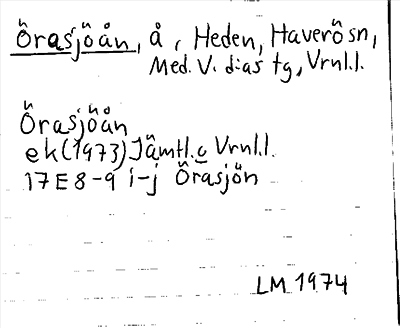 Örasjöån, å, Heden, Haverö sn,
Med. V. dias tg, Vrnl.l.
Örasjöån
ek (1973) Jämtl. o Vrnl.l.
17E 8-9 i-j Örasjön
LM 1974